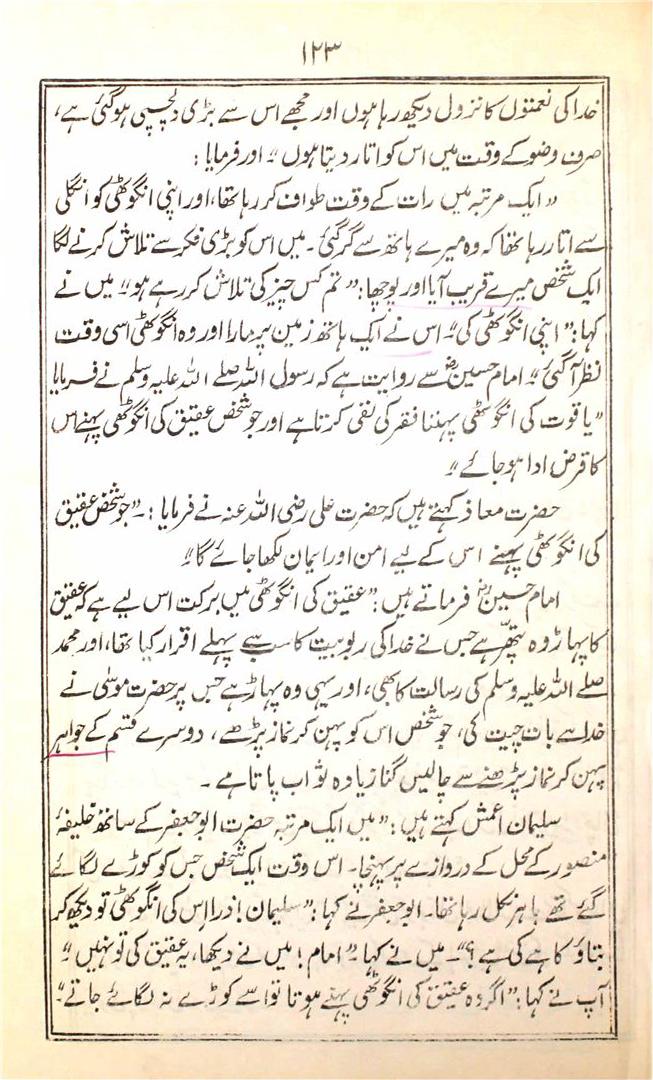 ۱۲۳
خدا کی نعمتوں کا نزول دیکھ رہا ہوں اور مجھے اس سے بڑی دلچسپی ہوگئی ہے،
صرف وضو کے وقت میں اس کو اتار دیتا ہوں" اور فرمایا :
" ایک مرتبہ میں رات کے وقت طواف کر رہا تھا، اور اپنی انگوٹھی کو انگلی
سے اتار رہا تھا کہ وہ میرے ہاتھ سے گر گئی۔ میں اس کو بڑی فکر سے تلاش کرنے لگا
ایک شخص میرے قریب آیا اور پوچھا :" تم کس چیز کی تلاش کر رہے ہو" میں نے
کہا :" اپنی انگوٹھی کی" اس نے ایک ہاتھ زمین پر مارا اور وہ انگوٹھی اسی وقت
نظر آگئی" امام حسینؓ سے روایت ہے کہ رسول اللہ صلے اللہ علیہ وسلم نے فرمایا
"یاقوت کی انگوٹھی پہننا فقر کی نفی کرتا ہے اور جو شخص عقیق کی انگوٹھی پہنے اس
کا قرض ادا ہو جائے"
حضرت معاذ کہتے ہیں کہ حضرت علی رضی اللہ عنہ نے فرمایا :۔"جو شخص عقیق
کی انگوٹھی پہنے اس کے لیے امن اور ایمان لکھا جائے گا"
امام حسینؓ فرماتے ہیں :" عقیق کی انگوٹھی میں برکت اس لیے ہے کہ عقیق
کا پہاڑ وہ پتھر ہے جس نے خدا کی ربوبیت کا سب سے پہلے اقرار کیا تھا، اور محمد
صلے اللہ علیہ وسلم کی رسالت کا بھی، اور یہی وہ پہاڑ ہے جس پر حضرت موسٰی نے
خدا سے بات چیت کی، جو شخص اس کو پہن کر نماز پڑھے، دوسرے قسم کے جواہر
پہن کر نماز پڑھنے سے چالیس گنا زیادہ ثواب پاتا ہے ۔
سلیمان اعمش کہتے ہیں :" میں ایک مرتبہ حضرت ابو جعفر کے ساتھ خلیفہ
منصور کے محل کے دروازے پر پہنچا۔ اس وقت ایک شخص جس کو کوڑے لگائے
گئے تھے باہر نکل رہا تھا۔ ابو جعفر نے کہا :" سلیمان! ذرا اس کی انگوٹھی تو دیکھ کر
بتاؤ کاہے کی ہے ؟"۔ میں نے کہا " امام! میں نے دیکھا، یہ عقیق کی تو نہیں"
آپ نے کہا :" اگر وہ عقیق کی انگوٹھی پہنے ہوتا تو اسے کوڑے نہ لگائے جاتے"